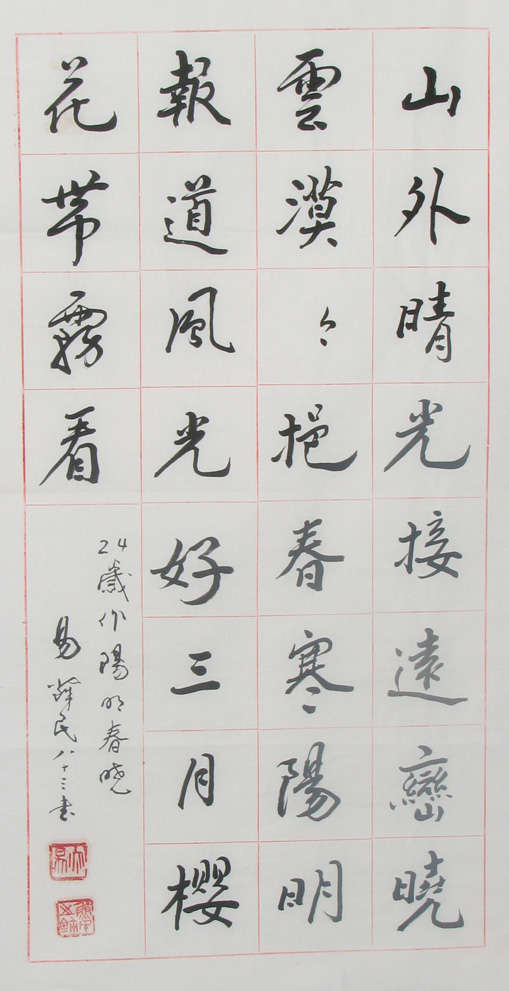 山外晴光接遠巒曉
雲漠々挹春寒陽明
報道風光好三月櫻
花带霧看
24歲作陽明春曉
易蘇民八十三書